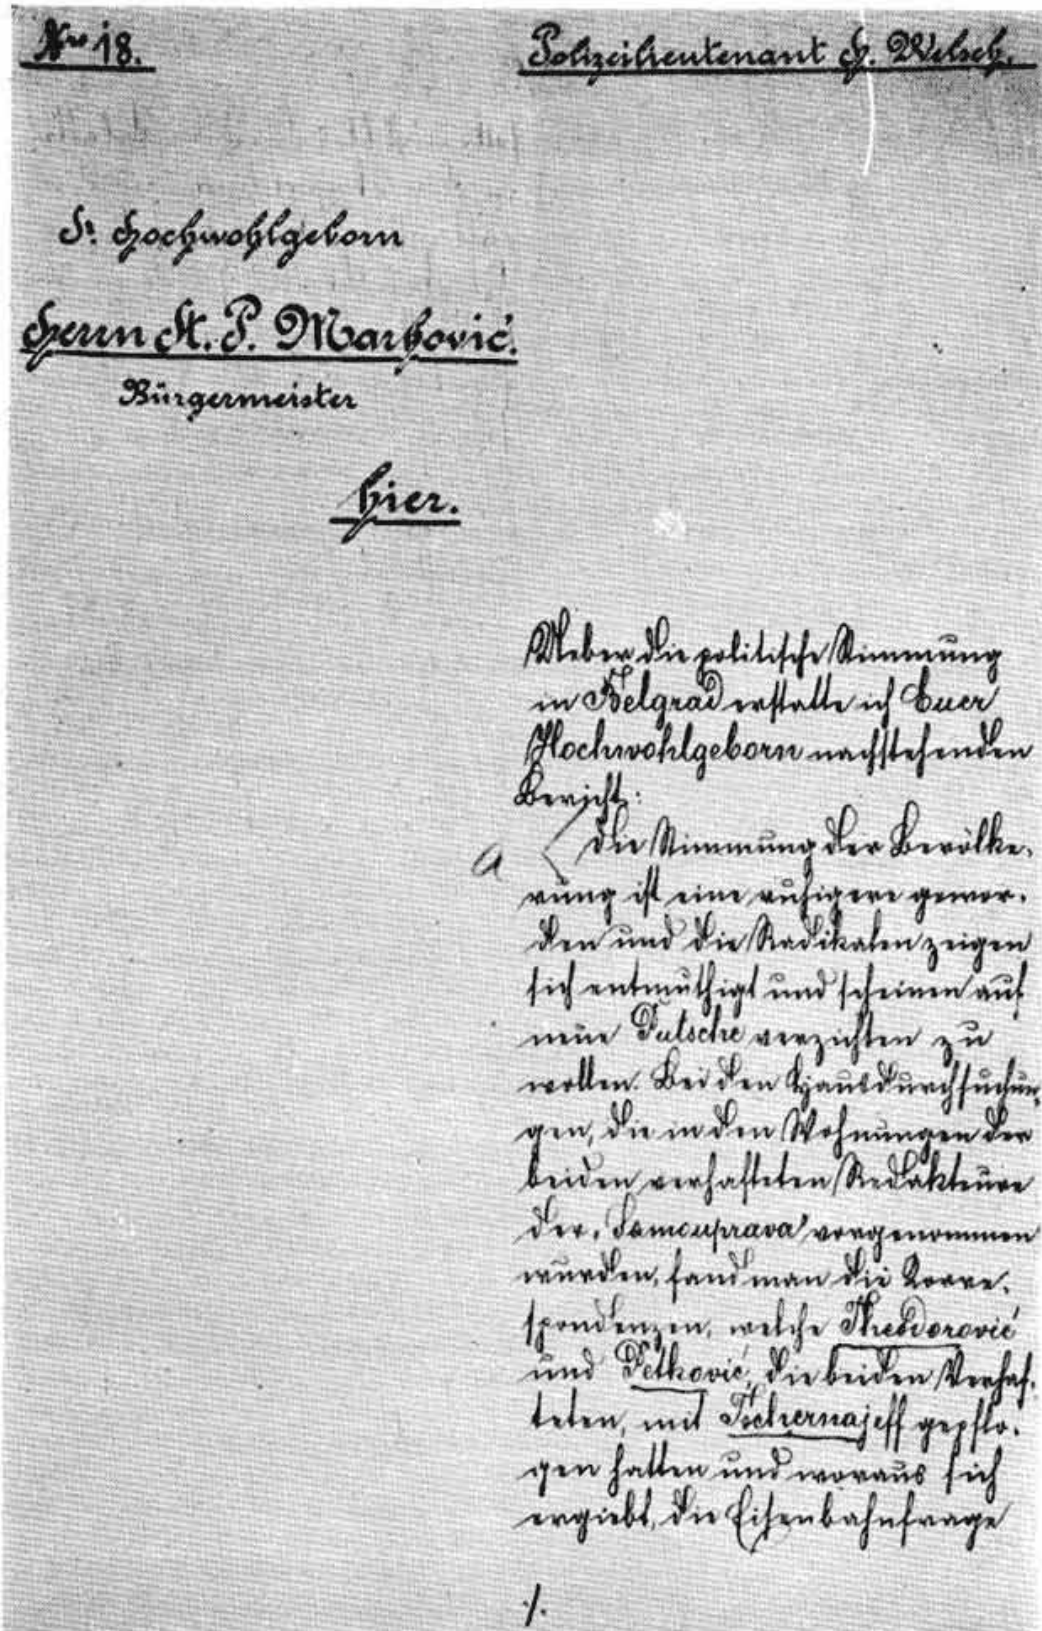 Nro 18.
Polizeilieutenant H. Welsch.
Sr. Hochwohlgeborn
Herrn St. P. Marković.
Bürgermeister
hier.
Ueber die politische Stimmung
in Belgrad erstatte ich Euer
Hochwohlgeborn nachstehenden
Bericht:
a
Die Stimmung der Bevölke-
rung ist eine ruhigere gewor-
den und die Radikalen zeigen
sich entmuthigt und scheinen auf
neue Putsche verzichten zu
wollen. Bei den Hausdurchsuchun-
gen, die in den Wohnungen der
beiden verhafteten Redakteure
der „Samouprava" vorgenommen
wurden, fand man die Korre-
spondenzen, welche Theodorović
und Petković, die beiden Verhaf-
teten, mit Tschernajeff gepflo-
gen hatten und woraus sich
ergiebt, die Eisenbahnfrage
./.